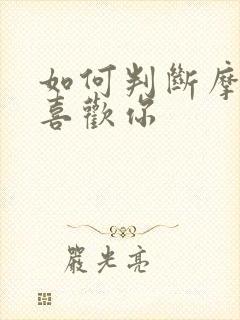 如何判斷摩
喜歡你
嚴光亮